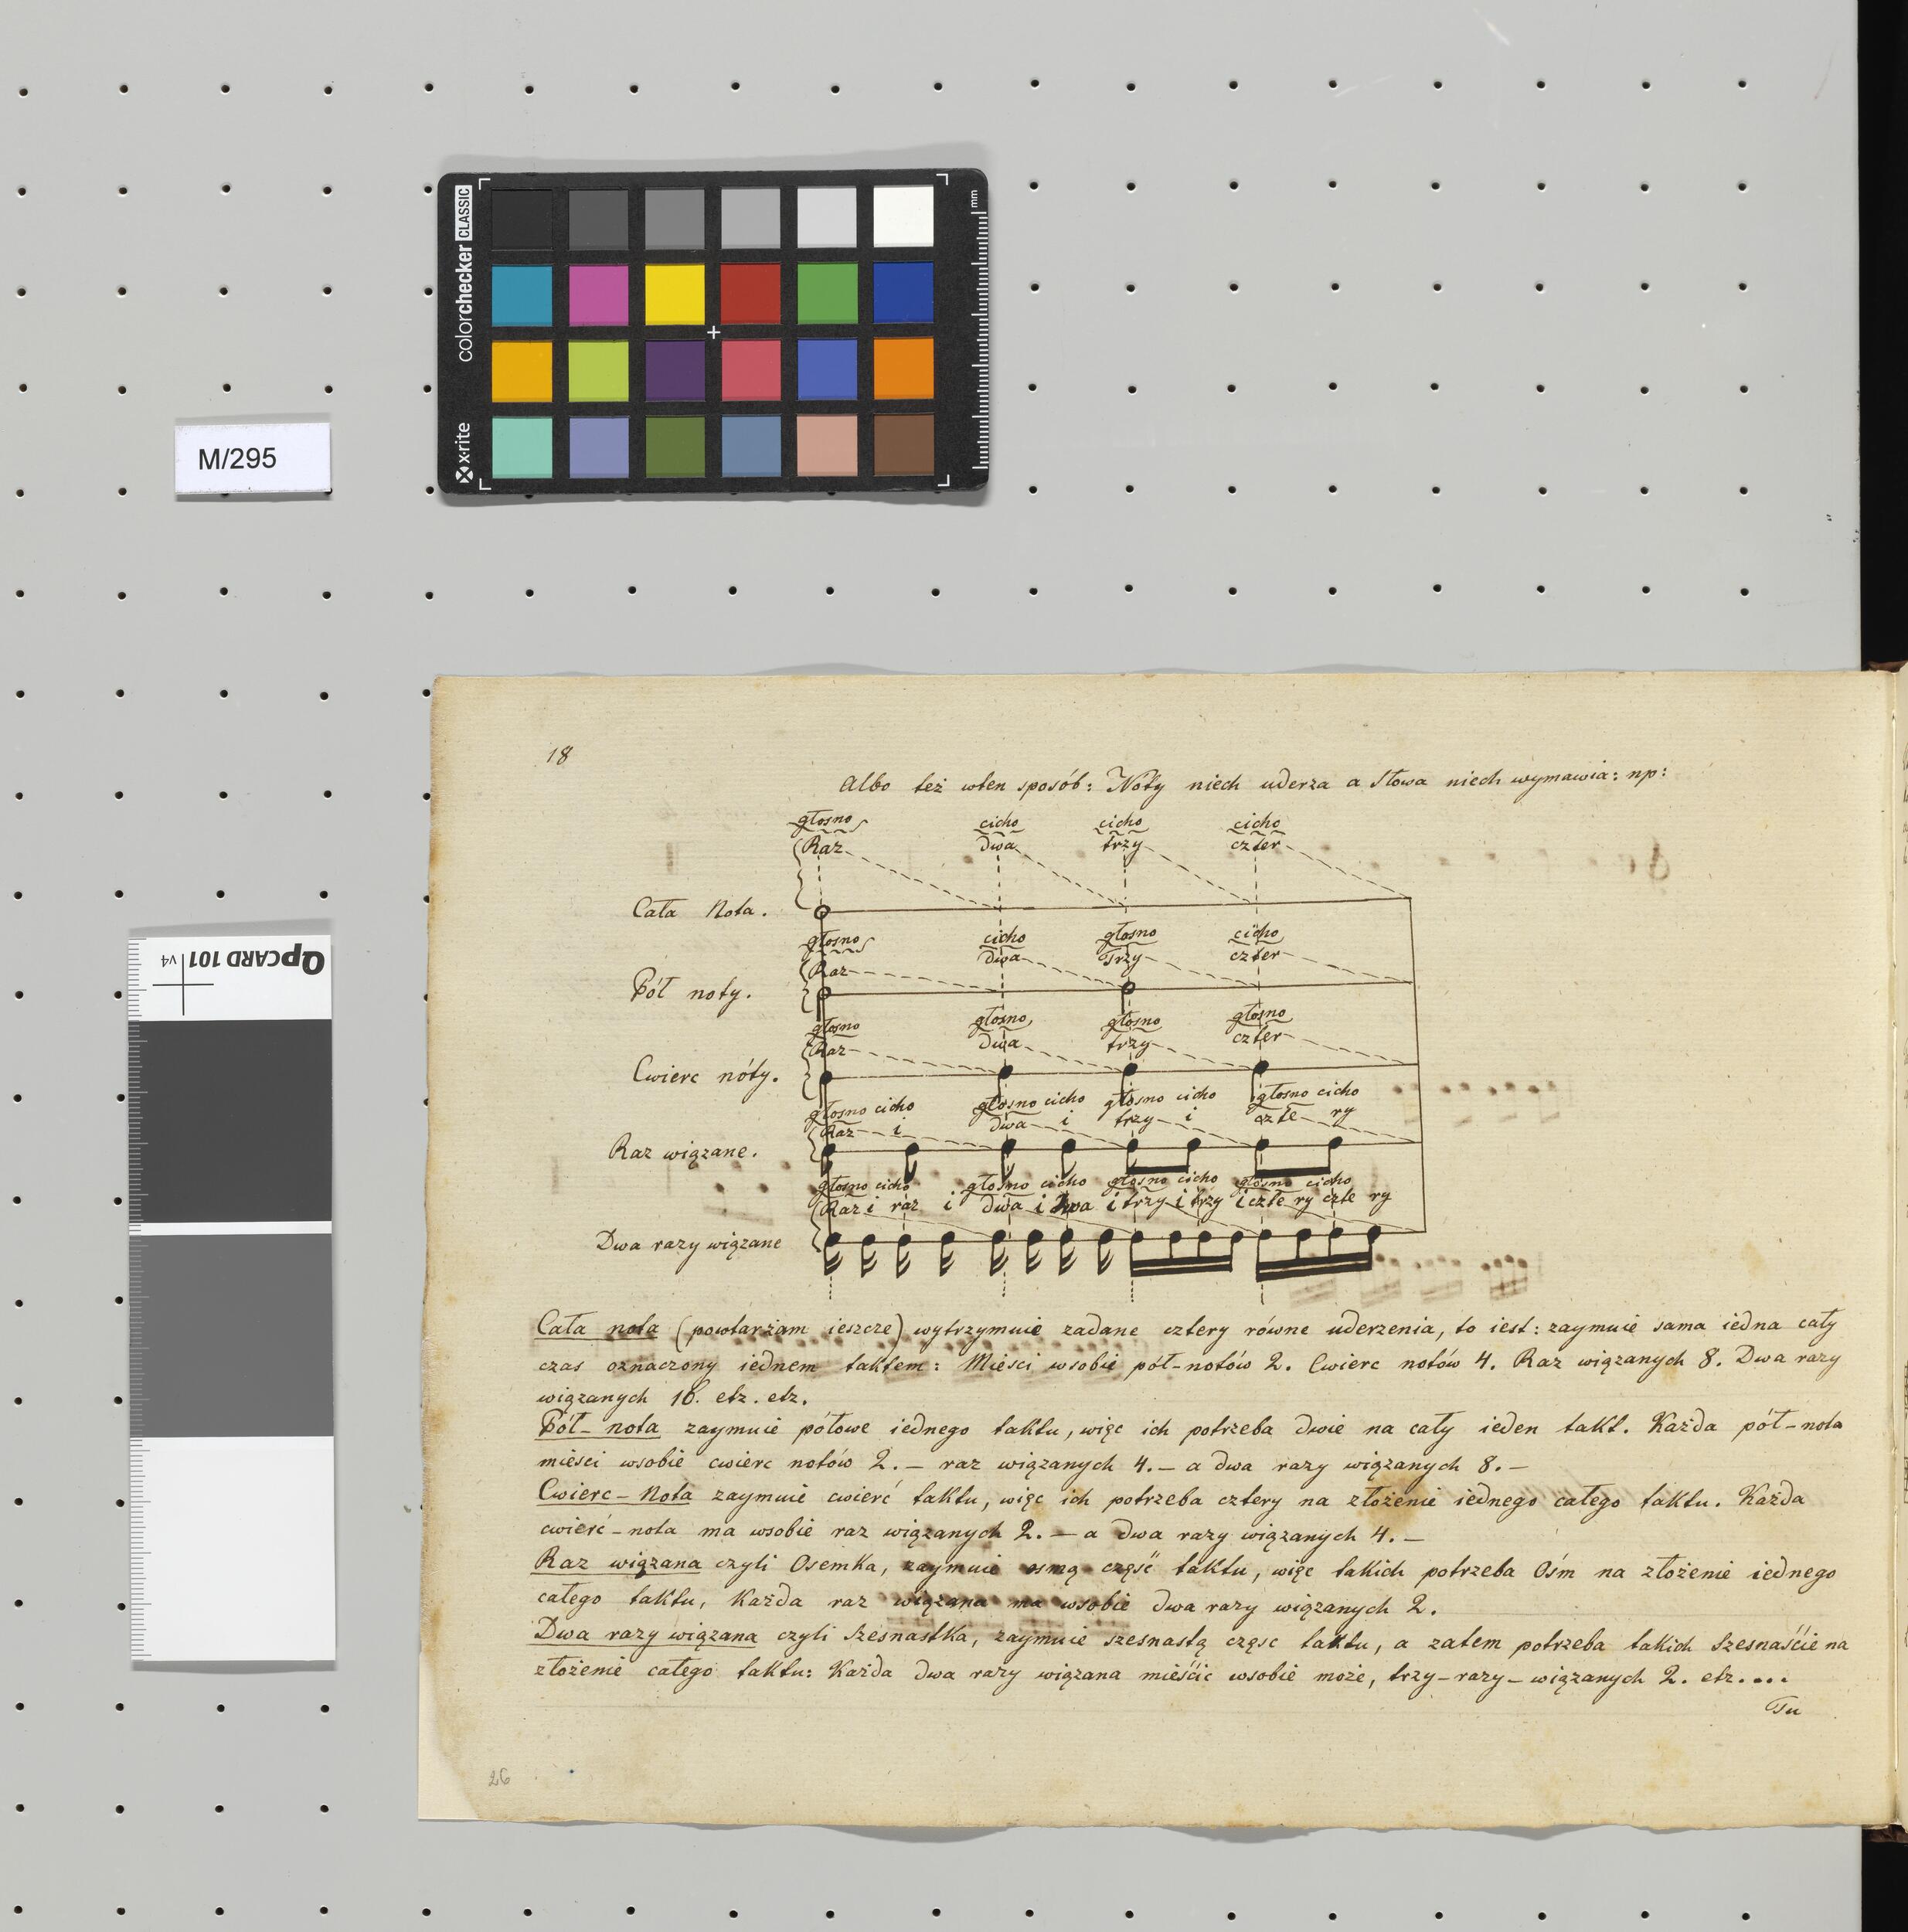 colorchecker CLASSIC
x-rite
mm
M/295
QpCARD 101 v4
18
Albo też wten sposób: Nóty niech uderza a Słowa niech wymawia: np:
głosno cicho cicho cicho
Raz dwa trzy czter
Cała Nota.
głosno cicho głosno cicho
Raz dwa Trzy czter
Pół noty.
głosno głosno głosno głosno
Raz dwa trzy czter
Cwierc nóty.
głosno cicho głosno cicho głosno cicho głosno cicho
Raz i dwa i trzy i czte ry
Raz wiązane.
głosno cicho głosno cicho głosno cicho głosno cicho
Raz i raz i dwa i dwa i trzy i trzy i czte ry czte ry
Dwa razy wiązane
Cała nota (powtarzam ieszcze) wytrzymuie zadane cztery równe uderzenia, to iest: zaymuie sama iedna cały
czas oznaczony iednem taktem: Miesci wsobie pół-notów 2. Cwierc notów 4. Raz wiązanych 8. Dwa razy
wiązanych 16. etz. etz.
Pół-nota zaymuie półowe iednego taktu, więc ich potrzeba dwie na cały ieden takt. Każda pół-nota
miesci wsobie cwierc notów 2.- raz wiązanych 4.- a dwa razy wiązanych 8.-
Cwierc-Nota zaymuie cwierć taktu, więc ich potrzeba cztery na złożenie iednego całego taktu. Każda
cwierć-nota ma wsobie raz wiązanych 2.- a dwa razy wiązanych 4.-
Raz wiązana czyli Osemka, zaymuie osmą część taktu, więc takich potrzeba Ośm na złożenie iednego
całego taktu, Każda raz wiązana ma wsobie dwa razy wiązanych 2.
Dwa razy wiązana czyli Szesnastka, zaymuie szesnastą częsc taktu, a zatem potrzeba takich Szesnaście na
złożenie całego taktu: Każda dwa razy wiązana mieścic wsobie może, trzy-razy-wiązanych 2. etz....
Tu
26